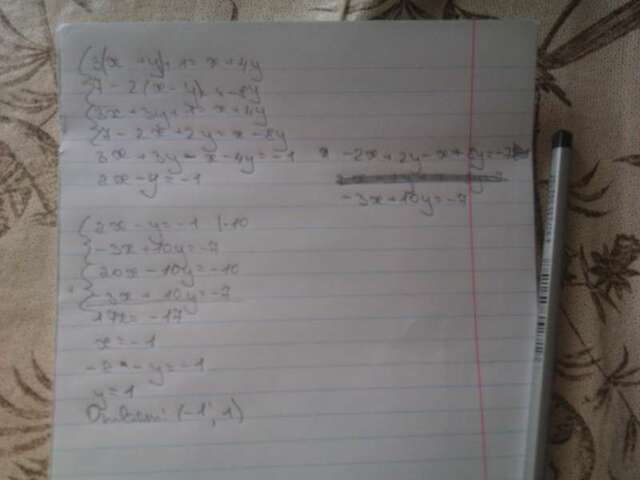 3(x + y) + 1 = x + 4y
7 - 2(x - y) = x - 8y
3x + 3y + 1 = x + 4y
7 - 2x + 2y = x - 8y
3x + 3y - x - 4y = -1 -2x + 2y - x + 8y = -7
2x - y = -1
-3x + 10y = -7
2x - y = -1 |·10
-3x + 10y = -7
20x - 10y = -10
-3x + 10y = -7
17x = -17
x = -1
-2 - y = -1
y = 1
Ответ: (-1; 1)